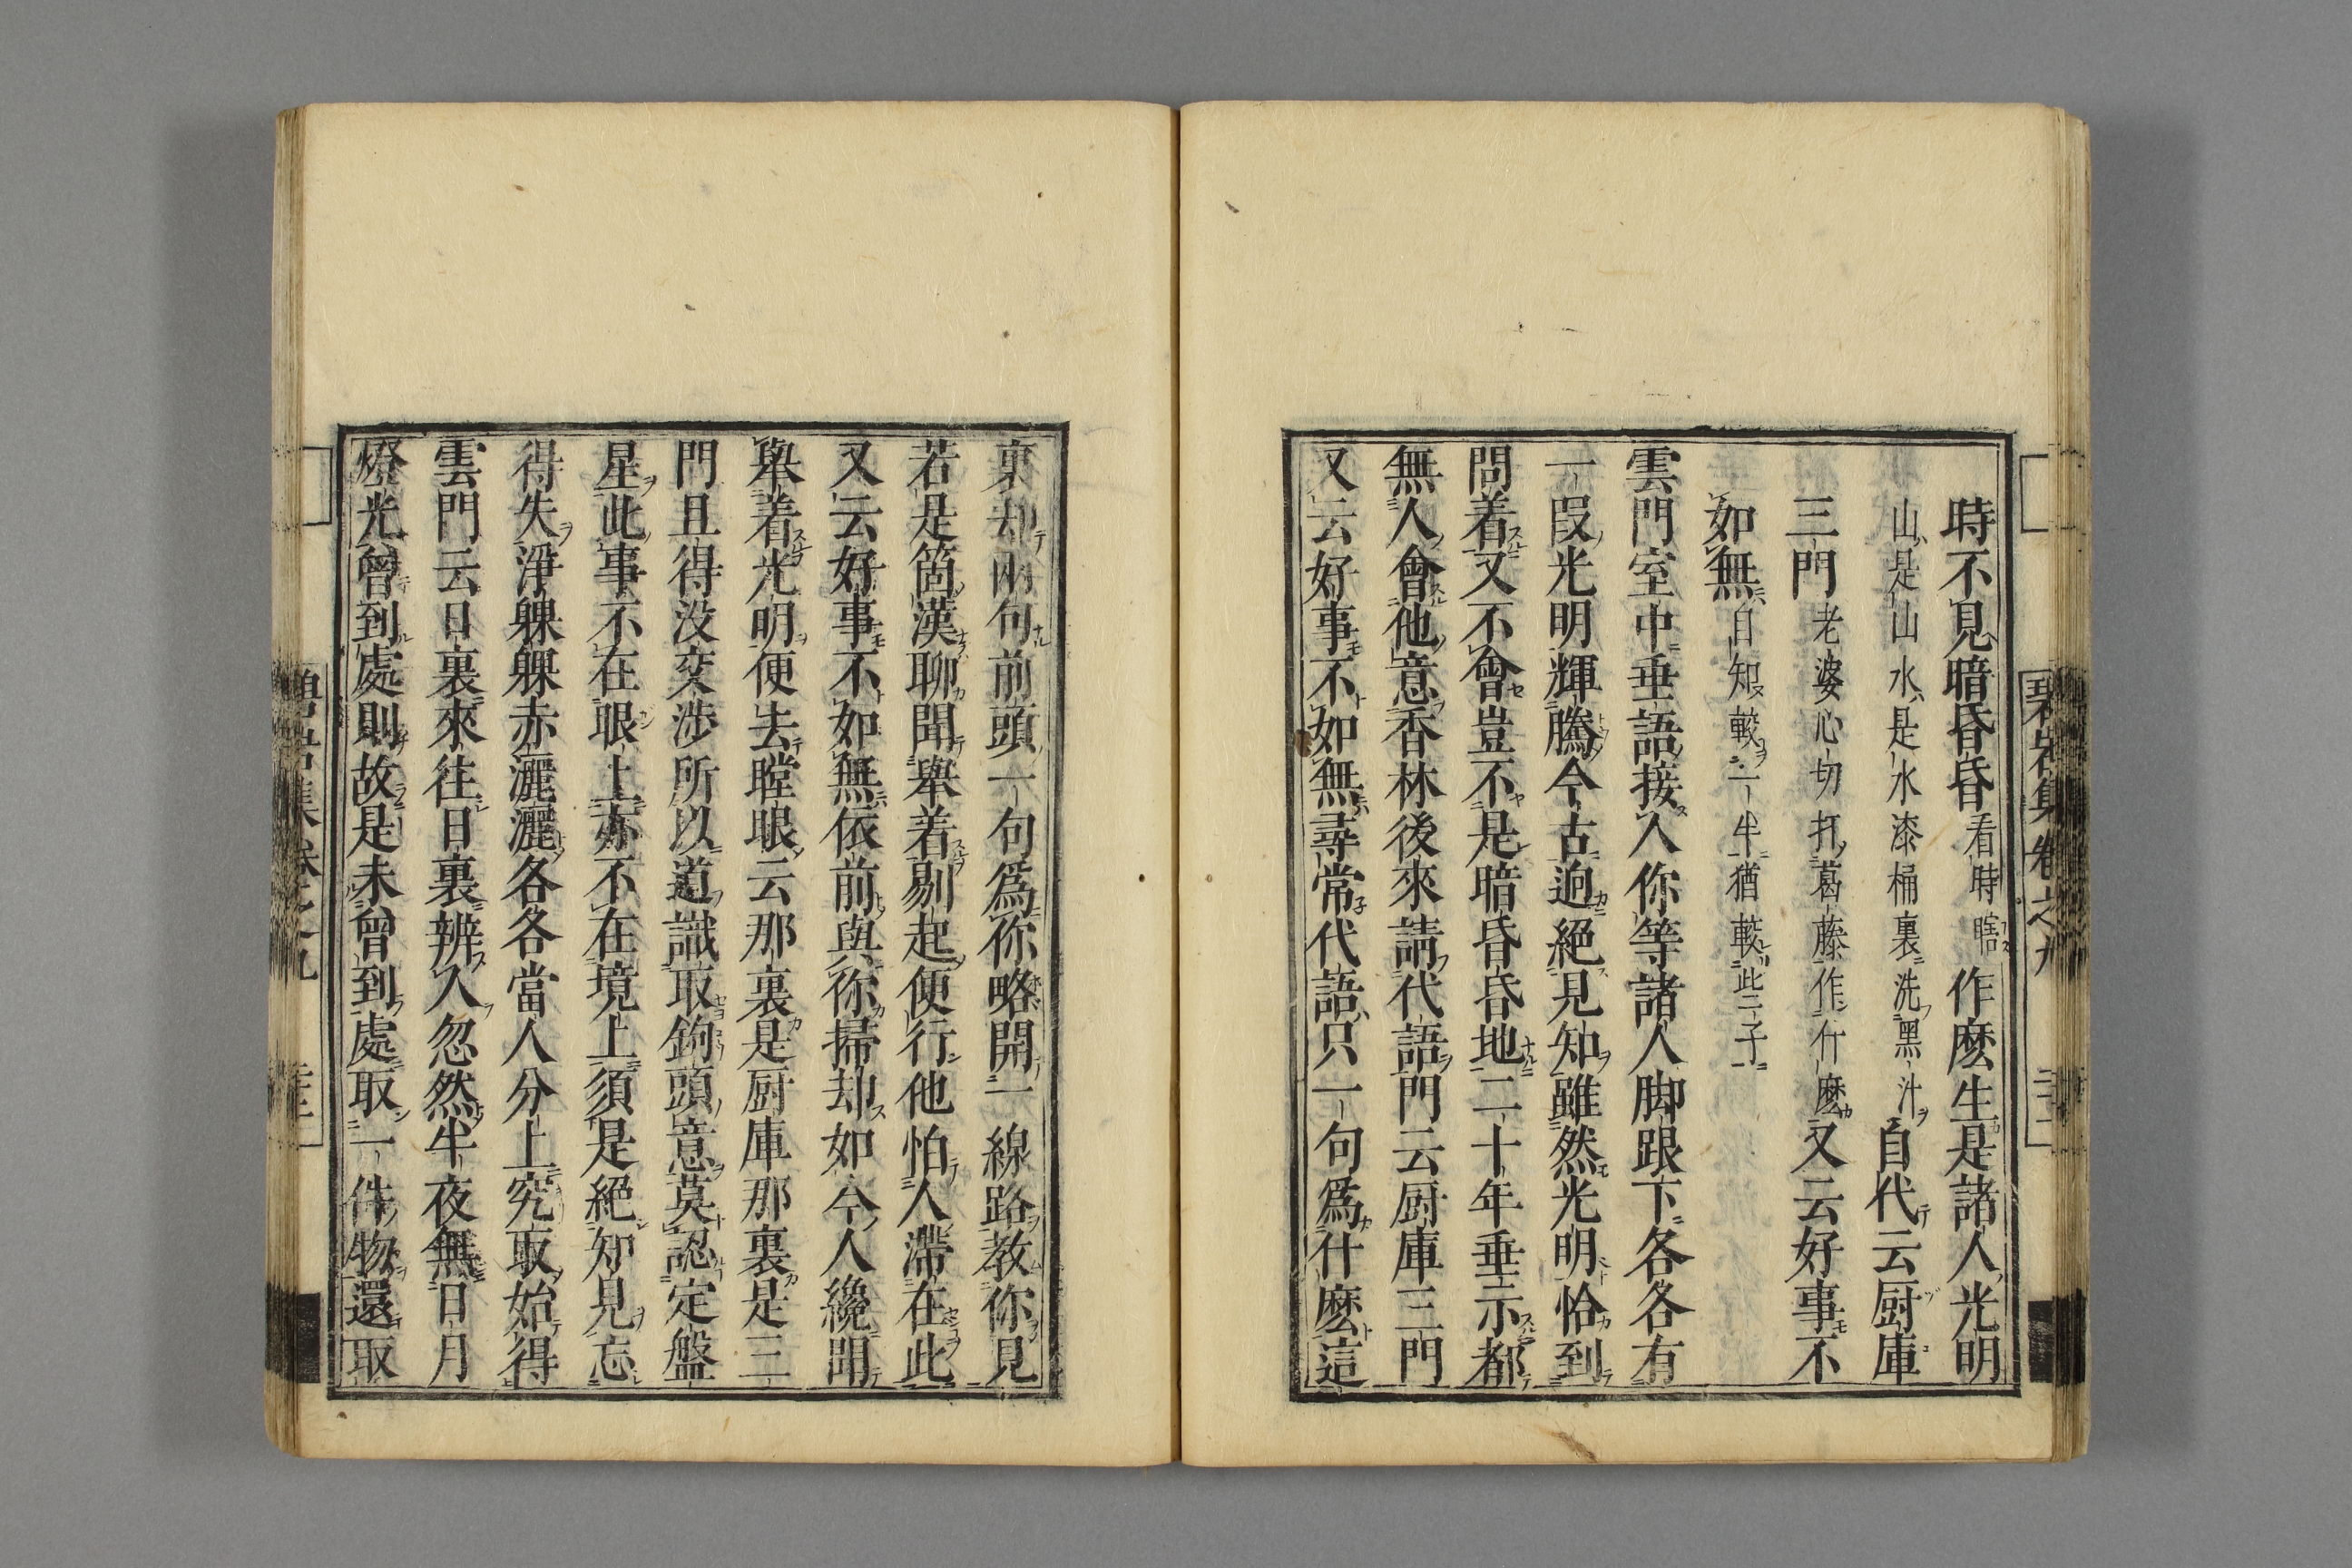 時不見暗昏昏看時瞎作麽生是諸人光明
山是山水是水漆桶裏洗黑汁自代云厨庫
三門老婆心切打葛藤作什麽又云好事不
如無自知較一半猶較些子
雲門室中垂語接人你等諸人脚跟下各各有
一段光明輝騰今古逈絕見知雖然光明恰到
問着又不會豈不是暗昏昏地二十年垂示都
無人會他意香林後來請代語門云厨庫三門
又云好事不如無尋常代語只一句爲什麽這
裏却兩句前頭一句爲你略開一線路教你見
若是箇漢聊聞舉着剔起便行他怕人滯在此
又云好事不如無依前與你掃却如今人纔聞
舉着光明便去瞠眼云那裏是厨庫那裏是三
門且得没交渉所以道識取鉤頭意莫認定盤
星此事不在眼上亦不在境上須是絕知見忘
得失淨躶躶赤灑灑各各當人分上究取始得
雲門云日裏來往日裏辨人忽然半夜無日月
燈光曾到處則故是未曾到處取一件物還取
碧岩集卷之九